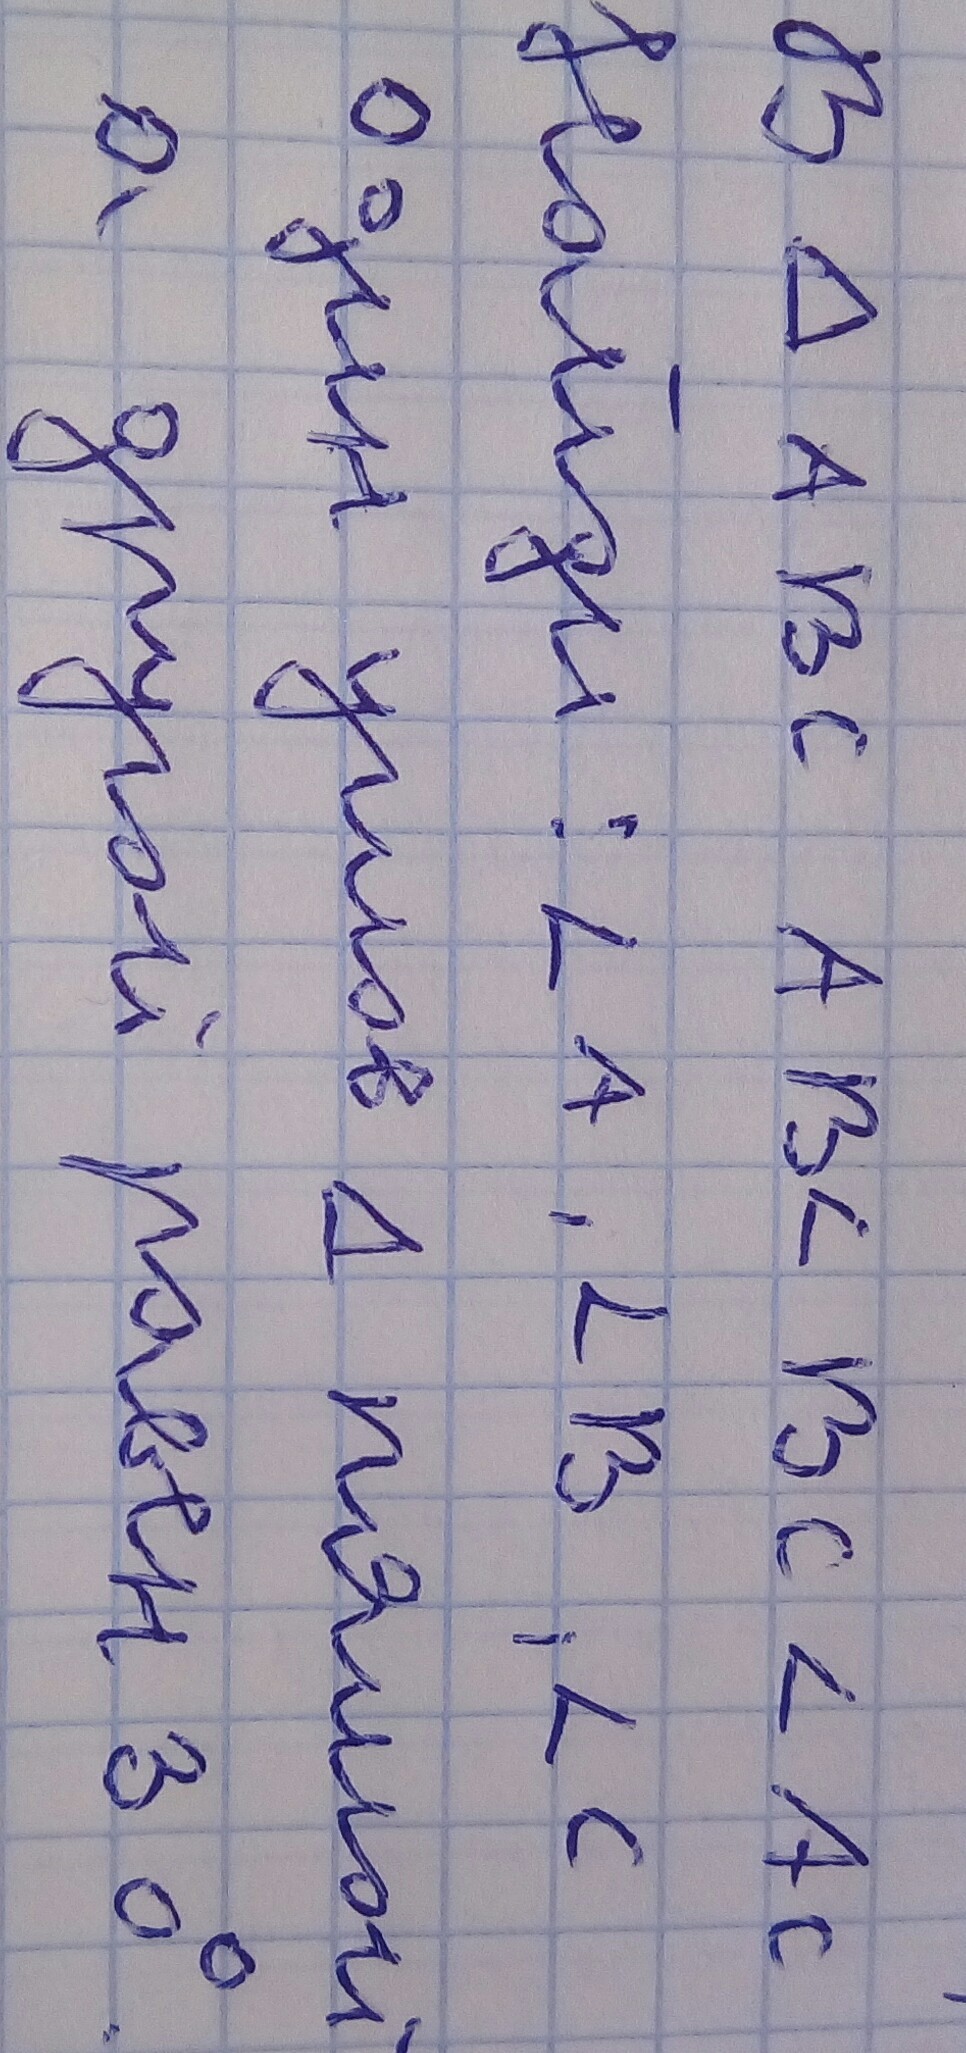 В Δ ABC AB<BC<AC
Найди: ∠A, ∠B, ∠C
о один углов Δ прямой
а, другой равен 30°.